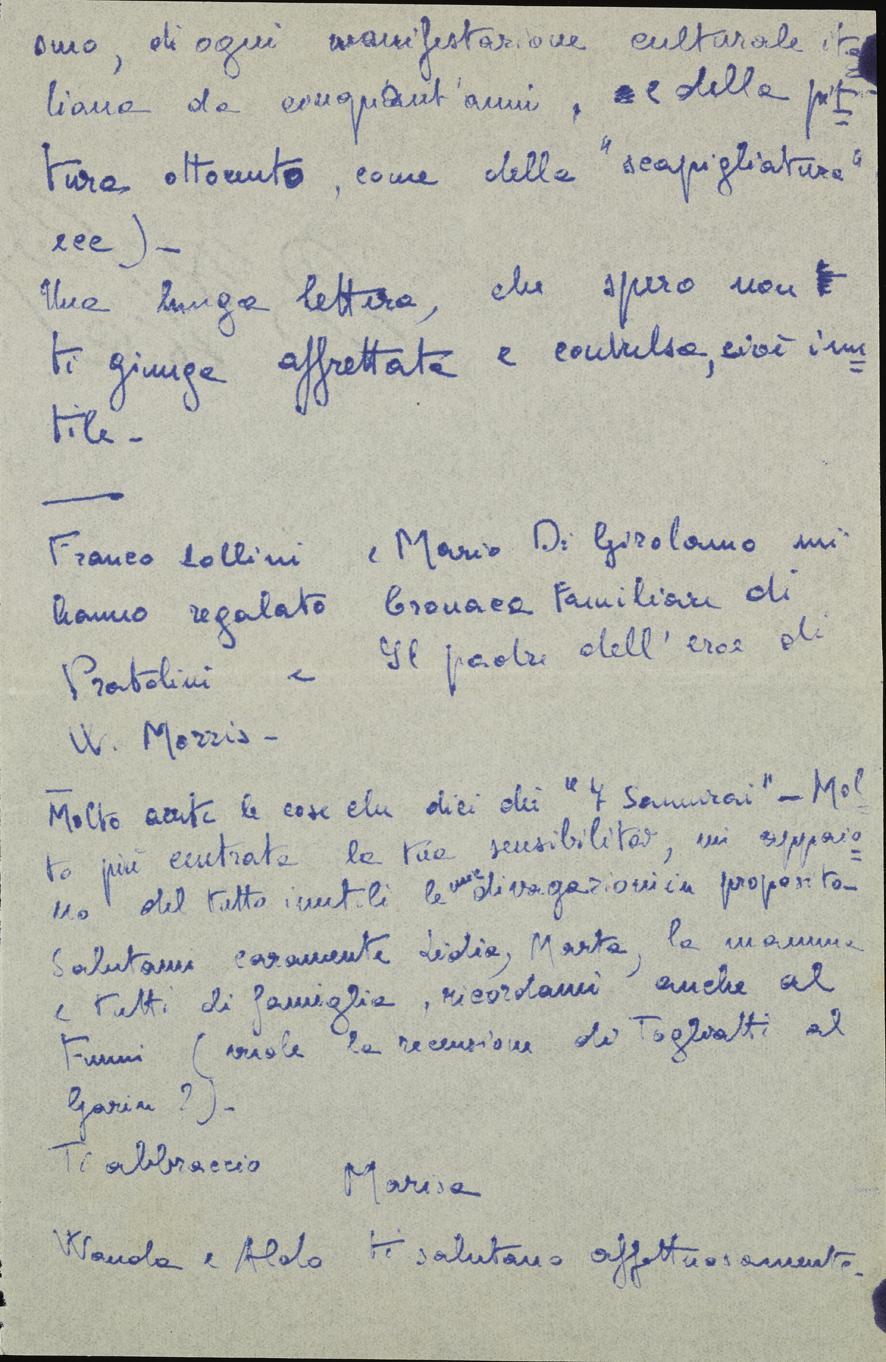 smo, di ogni manifestazione culturale ita
liana da cinquant'anni, e della pit
tura ottocento, come della "scapigliatura"
ecc) -
Una lunga lettera, che spero non
ti giunga affrettata e convulsa, cioè inu
tile -
Franco Lollini e Mario Di Girolamo mi
hanno regalato Cronaca Familiare di
Pratolini e Il padre dell'eroe di
W. Morris -
Molto acute le cose che dici dei "7 Samurai" - Mol
to più centrata la tua sensibilità, mi appaio
no del tutto inutili le mie divagazioni in proposito -
Salutami caramente Lidia, Marta, la mamma
e tutti di famiglia, ricordami anche al
(vuole la recensione di Togliatti al
Garin?) -
Ti abbraccio Marisa
Wanda e Aldo ti salutano affettuosamente -